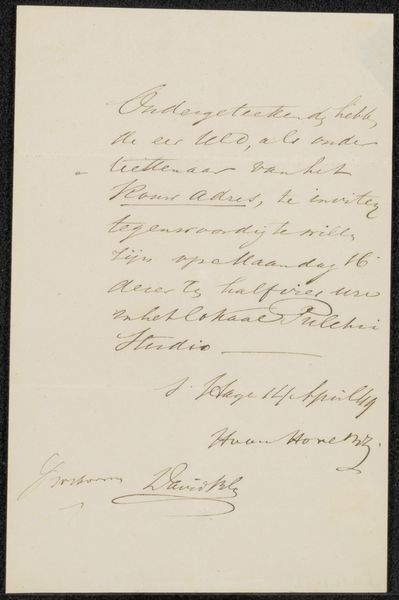 Ondergeteekende hebb
de eer UEd, als onder
teekenaar van het
Kouw Adres, te inviter
tegenwoordig te will
zijn op Maandag 16
dezer te halfvier ure
in het lokaal Pulchri
Studio —
s. Hage 14 April 49
H van Hove Bz.
David Bles